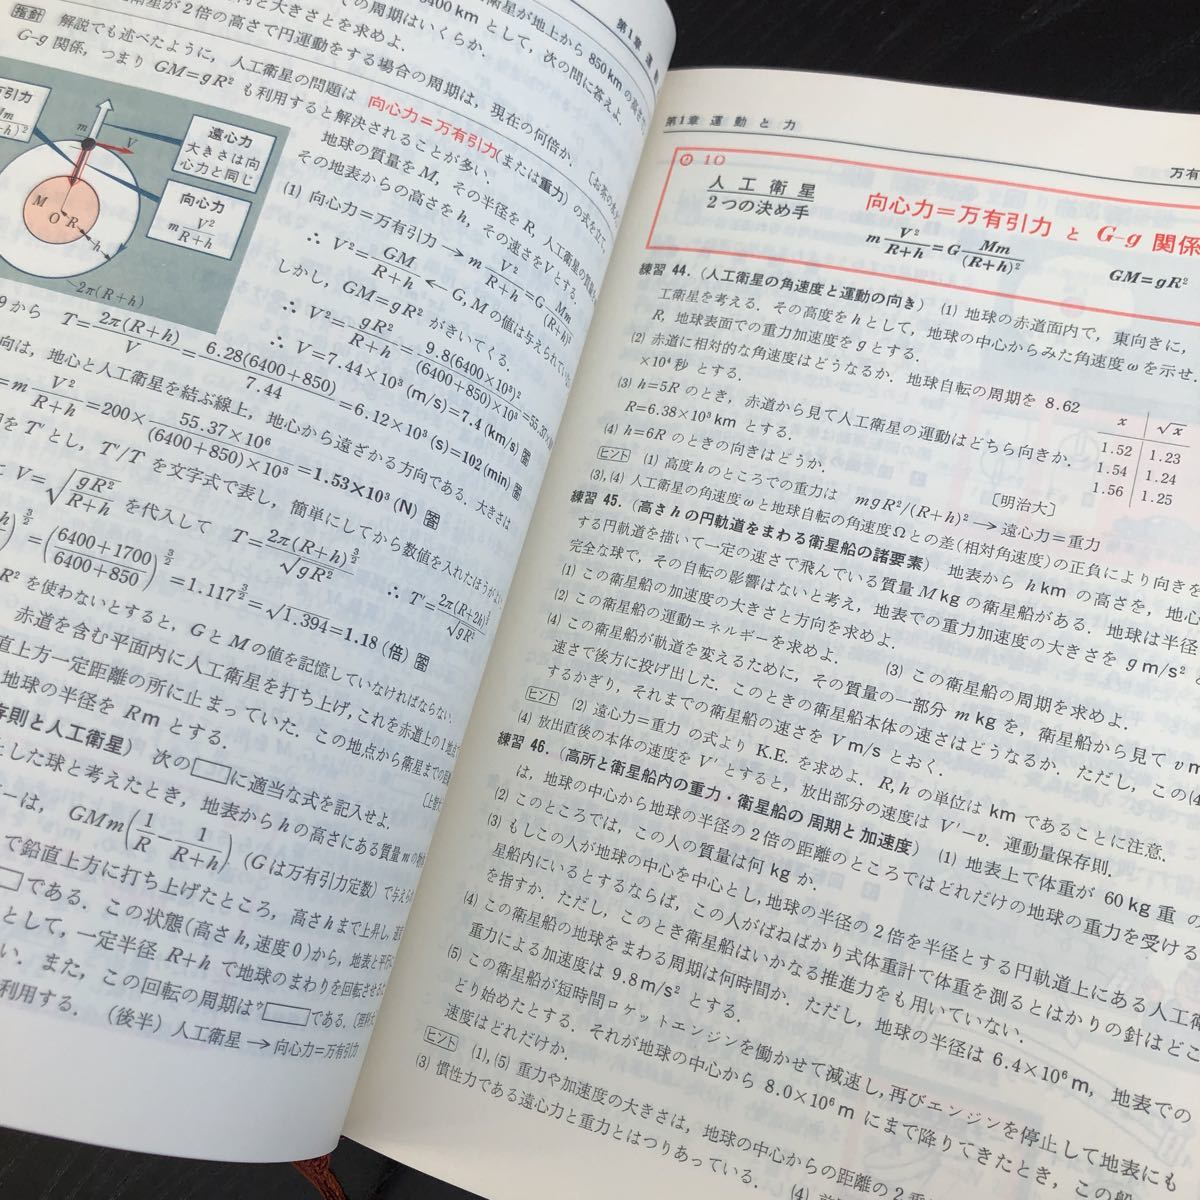 第1章 運動
衛星が地上から 850 km の高さ
6400 km として，次の問に答えよ．
向と大きさとを求めよ．
の周期はいくらか．
衛星が 2 倍の高さで円運動をする場合の周期は，現在の何倍か．
指針 解説でも述べたように，人工衛星の問題は 向心力＝万有引力(または重力) の式を立て，
G-g 関係，つまり GM=gR² も利用すると解決されることが多い．
地球の質量を M，その半径を R，人工衛星の質量
その地表からの高さを h，その速さを V とする．
遠心力
大きさは向
心力と同じ
向心力
m V²/(R+h)
M O R h m V
2π(R+h)
(1) 向心力＝万有引力 → m V²/(R+h)=G Mm/(R+h)²
∴ V²=GM/(R+h) ← G, M の値は与えられてい
しかし，GM=gR² がきいてくる．
∴ V²=gR²/(R+h)=9.8(6400×10³)²/((6400+850)×10³)=55.37×
∴ V=7.44×10³(m/s)=7.4(km/s) 答
から T=2π(R+h)/V=6.28(6400+850)/7.44=6.12×10³(s)=102(min) 答
向は，地心と人工衛星を結ぶ線上，地心から遠ざかる方向である．大きさは
=m V²/(R+h)=200×55.37×10⁶/((6400+850)×10³)=1.53×10³(N) 答
を T′ とし，T′/T を文字式で表し，簡単にしてから数値を入れたほうがよい
V=√(gR²/(R+h)) を代入して T=2π(R+h)^(3/2)/√(gR²) ∴ T′=2π(R+2h)^(3/2)/√(gR²)
=((6400+1700)/(6400+850))^(3/2)=1.117^(3/2)=√1.394=1.18(倍) 答
R² を使わないとすると，G と M の値を記憶していなければならない．
赤道を含む平面内に人工衛星を打ち上げ，これを赤道上の1地
直上方一定距離の所に止まっていた．この地点から衛星までの距
地球の半径を R m とする．
存則と人工衛星) 次の□に適当な式を記入せよ．
とした球と考えたとき，地表から h の高さにある質量 m の物
ーは，GMm(1/R − 1/(R+h)) (G は万有引力定数) で与え
で鉛直上方に打ち上げたところ，高さ h まで上昇し，
□である．この状態(高さ h，速度 0)から，地表と平行
として，一定半径 R+h で地球のまわりを回転させる
い．また，この回転の周期はウ□である．
利用する． (後半) 人工衛星 → 向心力＝万有引力
第1章 運 動 と 力
万有
10
人 工 衛 星
2つの決め手
向心力＝万有引力 と G-g 関係
m V²/(R+h)=G Mm/(R+h)² GM=gR²
練習 44. (人工衛星の角速度と運動の向き) (1) 地球の赤道面内で，東向きに，
工衛星を考える．その高度を h として，地球の中心からみた角速度 ω を示せ．
R，地球表面での重力加速度を g とする．
(2) 赤道に相対的な角速度はどうなるか．地球自転の周期を 8.62
×10⁴ 秒とする．
(3) h=5R のとき，赤道から見て人工衛星の運動はどちら向きか．
R=6.38×10³ km とする．
(4) h=6R のときの向きはどうか． 〔明治大〕
x √x
1.52 1.23
1.54 1.24
1.56 1.25
ヒント (1) 高度 h のところでの重力は mgR²/(R+h)² → 遠心力＝重力
(3), (4) 人工衛星の角速度 ω と地球自転の角速度 Ω との差(相対角速度)の正負により向きを
練習 45. (高さ h の円軌道をまわる衛星船の諸要素) 地表から h km の高さを，地心
する円軌道を描いて一定の速さで飛んでいる質量 M kg の衛星船がある．地球は半径
完全な球で，その自転の影響はないと考え，地表での重力加速度の大きさを g m/s² と
(1) この衛星船の加速度の大きさと方向を求めよ．
(2) この衛星船の運動エネルギーを求めよ． (3) この衛星船の周期を求めよ．
(4) この衛星船が軌道を変えるために，その質量の一部分 m kg を，衛星船から見て v m
速さで後方に投げ出した．このときの衛星船本体の速さはどうなるか．ただし，この(4
するかぎり，それまでの衛星船の速さを V m/s とおく．
ヒント (2) 遠心力＝重力 の式より K.E. を求めよ．R, h の単位は km であることに注意．
(4) 放出直後の本体の速度を V′ とすると，放出部分の速度は V′−v．運動量保存則．
練習 46. (高所と衛星船内の重力・衛星船の周期と加速度) (1) 地表上で体重が 60 kg 重 の
は，地球の中心から地球の半径の 2 倍の距離のところではどれだけの地球の重力を受ける
(2) このところでは，この人の質量は何 kg か．
(3) もしこの人が地球の中心を中心とし，地球の半径の 2 倍を半径とする円軌道上にある人工衛
星船内にいるとするならば，この人がばねばかり式体重計で体重を測るとはかりの針はどこ
を指すか．ただし，このとき衛星船はいかなる推進力をも用いていない．
(4) この衛星船の地球をまわる周期は何時間か．ただし，地球の半径は 6.4×10⁶ m，地表での
重力による加速度は 9.8 m/s² とする．
(5) この衛星船が短時間ロケットエンジンを働かせて減速し，再びエンジンを停止して地表にも
どり始めたとする．それが地球の中心から 8.0×10⁶ m にまで降りてきたとき，この船
速度はどれだけか．
ヒント (1), (5) 重力や加速度の大きさは，地球の中心からの距離の 2 乗
(3) 慣性力である遠心力と重力とはつりあっている．